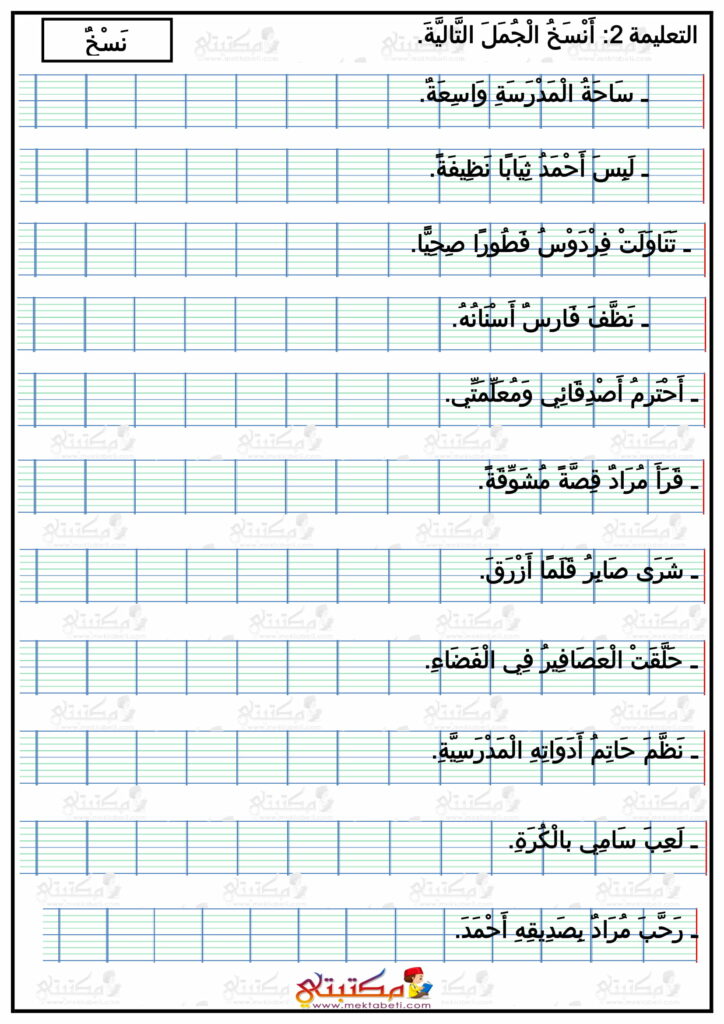 التعليمة 2: أَنْسَخُ الْجُمَلَ التَّالِيَّةَ.
نَسْخٌ
ـ سَاحَةُ الْمَدْرَسَةِ وَاسِعَةٌ.
ـ لَبِسَ أَحْمَدُ ثِيَابًا نَظِيفَةً.
ـ تَنَاوَلَتْ فِرْدَوْسُ فَطُورًا صِحِيًّا.
ـ نَظَّفَ فَارِسٌ أَسْنَانُهُ.
ـ أَحْتَرِمُ أَصْدِقَائِي وَمُعَلِّمَتِّي.
ـ قَرَأَ مُرَادٌ قِصَّةً مُشَوِّقَةً.
ـ شَرَى صَابِرُ قَلَمًا أَزْرَقَ.
ـ حَلَّقَتْ الْعَصَافِيرُ فِي الْفَضَاءِ.
ـ نَظَّمَ حَاتِمُ أَدَوَاتِهِ الْمَدْرَسِيَّةِ.
ـ لَعِبَ سَامِي بالْكُرَةِ.
ـ رَحَّبَ مُرَادٌ بِصَدِيقِهِ أَحْمَدَ.
مكتبتي
www.mektabeti.com